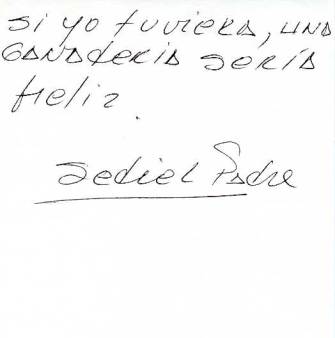 si yo tuviera, una
GANADERIA SERÍA
feliz.
Sediel Padre